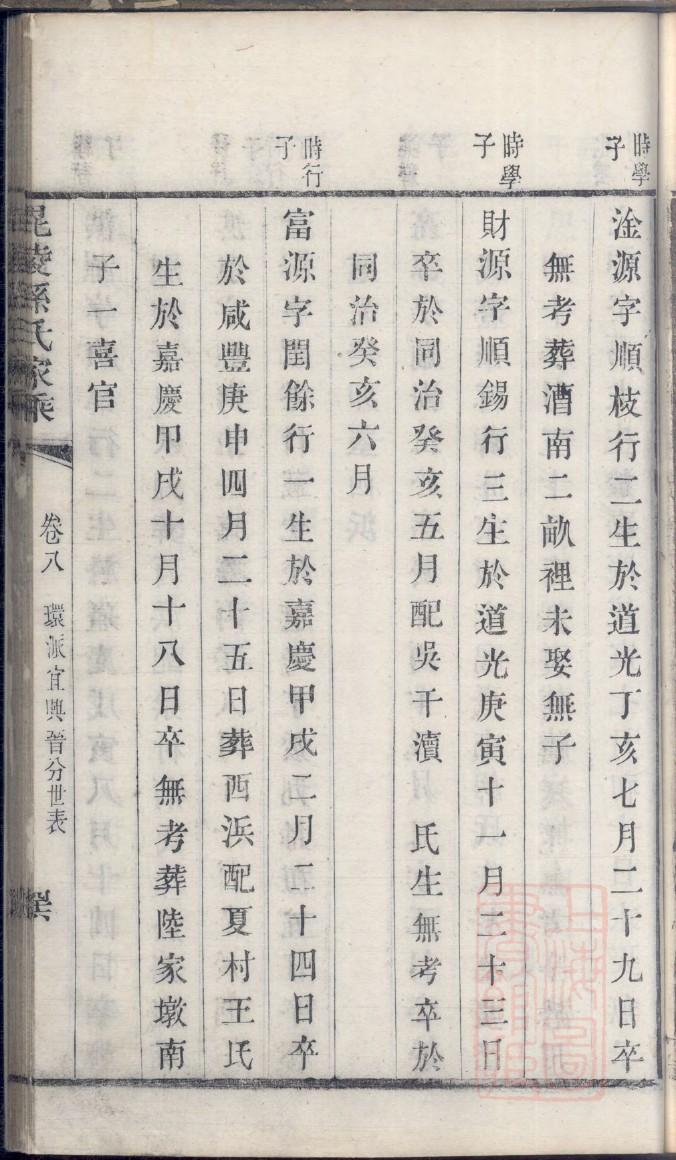 時學子
淦源字順枝行二生於道光丁亥七月二十九日卒
無考葬漕南二畝裡未娶無子
時學子
財源字順錫行三生於道光庚寅十一月二十三日
卒於同治癸亥五月配吳干瀆 氏生無考卒於
同治癸亥六月
時行子
富源字閏餘行一生於嘉慶甲戌二月二十四日卒
於咸豐庚申四月二十五日葬西浜配夏村王氏
生於嘉慶甲戌十月十八日卒無考葬陸家墩南
子一喜官
毘陵孫氏家乘
卷八 環派宜興晉分世表